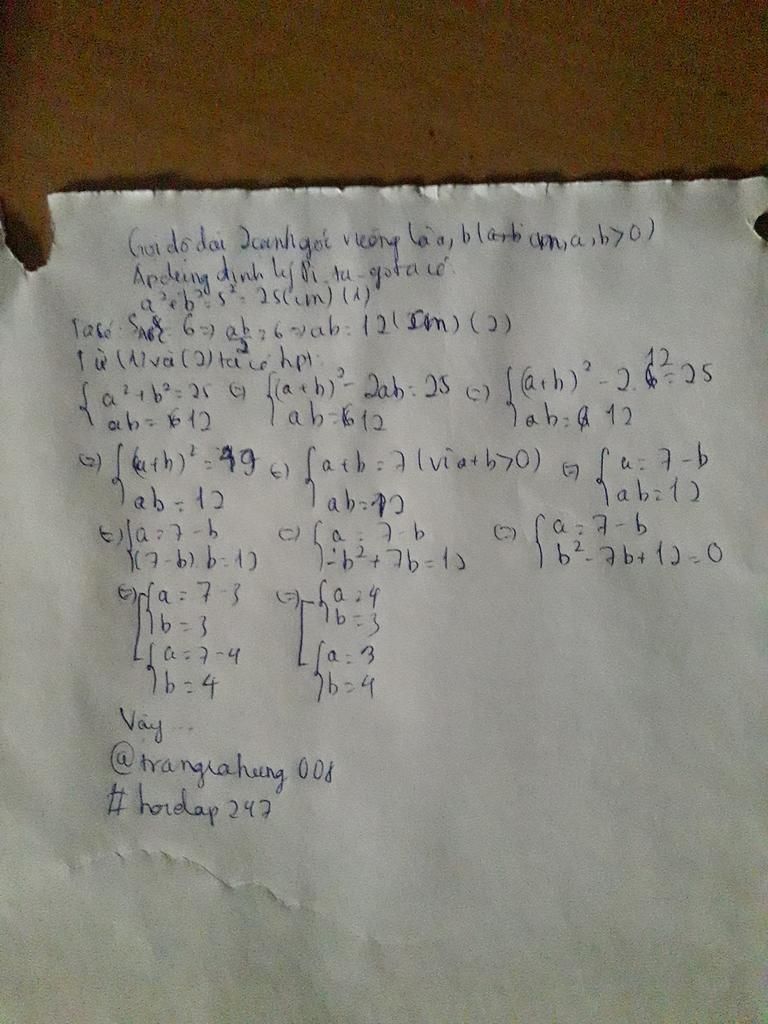 Gọi độ dài 2 cạnh góc vuông là a, b (a, b cm, a, b > 0)
Áp dụng định lý Pi-ta-go ta có:
a² + b² = 5² = 25 (cm) (1)
Ta có: S = 6 => ab/2 = 6 => ab = 12 (cm) (2)
Từ (1) và (2) ta có hpt:
{a² + b² = 25 (=) {(a+b)² - 2ab = 25 (=) {(a+b)² - 2.12 = 25
{ab = 12 {ab = 12 {ab = 12
(=) {(a+b)² = 49 (=) {a+b = 7 (vì a+b>0) (=) {a = 7 - b
{ab = 12 {ab = 12 {ab = 12
(=) {a = 7 - b (=) {a = 7 - b (=) {a = 7 - b
{(7-b).b = 12 {-b² + 7b = 12 {b² - 7b + 12 = 0
(=) [{a = 7 - 3 (=) [{a = 4
{b = 3 {b = 3
[{a = 7 - 4 [{a = 3
{b = 4 {b = 4
Vậy ...
@trangsahung008
#hoidap247